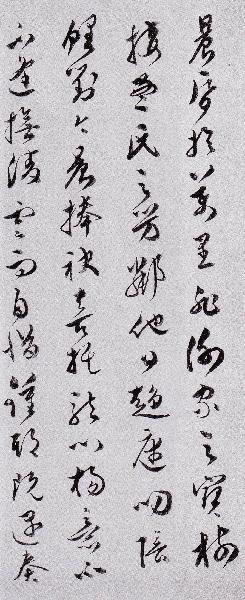 晨昏於萬里非謝家之寶樹
接孟氏之芳鄰他日趨庭叨陪
鯉對今晨捧袂喜托龍門楊意不
不逢撫凌雲而自惜鍾期既遇奏